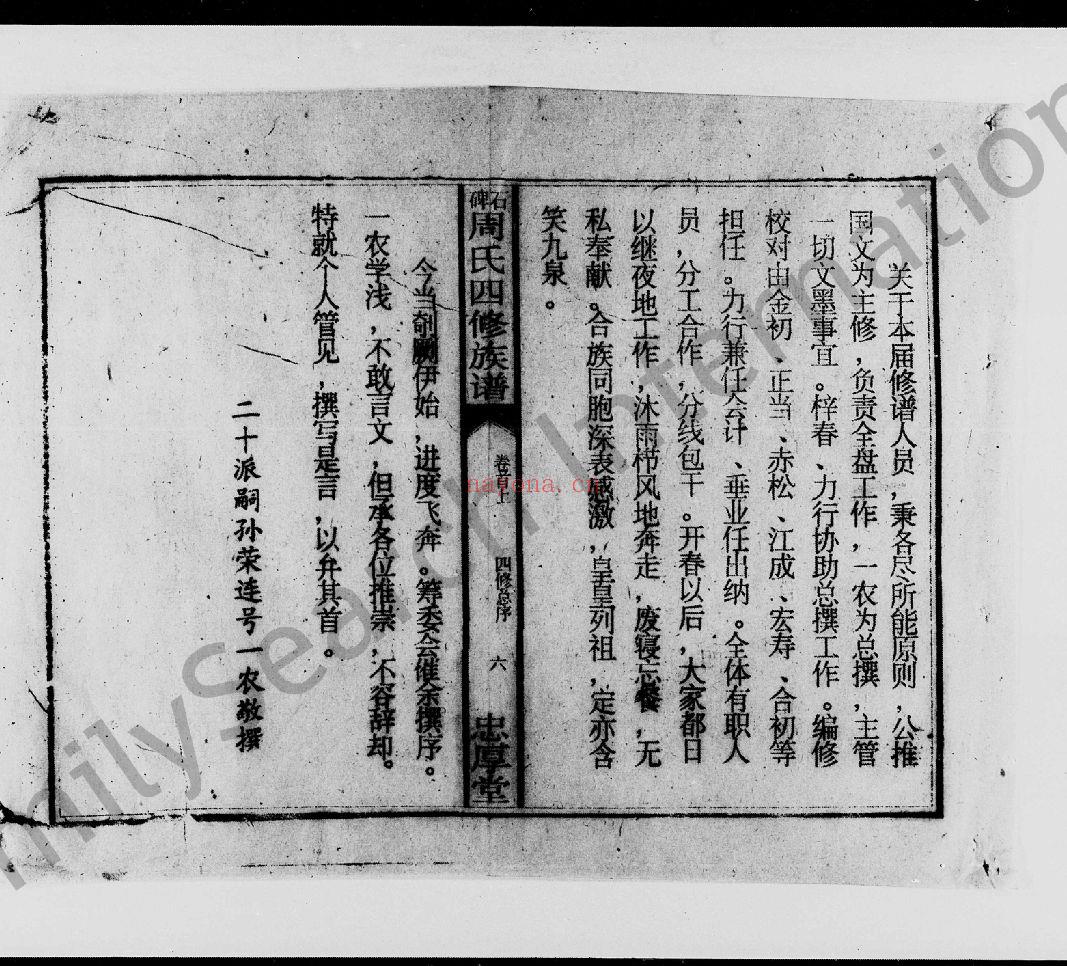 关于本届修谱人员，秉各尽所能原则，公推
国文为主修，负责全盘工作，一农为总撰，主管
一切文墨事宜。梓春、力行协助总撰工作。编修
校对由金初、正当、赤松、江成、宏寿、合初等
担任。力行兼任会计、垂业任出纳。全体有职人
员，分工合作，分线包干。开春以后，大家都日
以继夜地工作，沐雨栉风地奔走，废寝忘餐，无
私奉献。合族同胞深表感激，皇皇列祖，定亦含
笑九泉。
石碑
周氏四修族谱
卷首上
四修总序
六
忠厚堂
今当剞劂伊始，进度飞奔。筹委会催余撰序。
一农学浅，不敢言文，但承各位推崇，不容辞却。
特就个人管见，撰写是言，以弁其首。
二十派嗣孙荣连号一农敬撰
nayona.cn
FamilySearch International